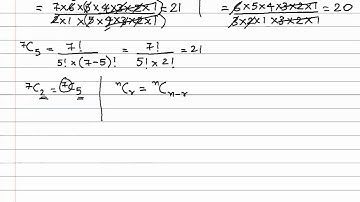 = 7×6×5×4×3×2×1 / 2×1×(5×4×3×2×1) = 21 | = 6×5×4×3×2×1 / 3×2×1×3×2×1 = 20
⁷C₅ = 7! / 5!×(7-5)! = 7! / 5!×2! = 21
⁷C₂ = ⁷C₅ | ⁿCᵣ = ⁿCₙ₋ᵣ